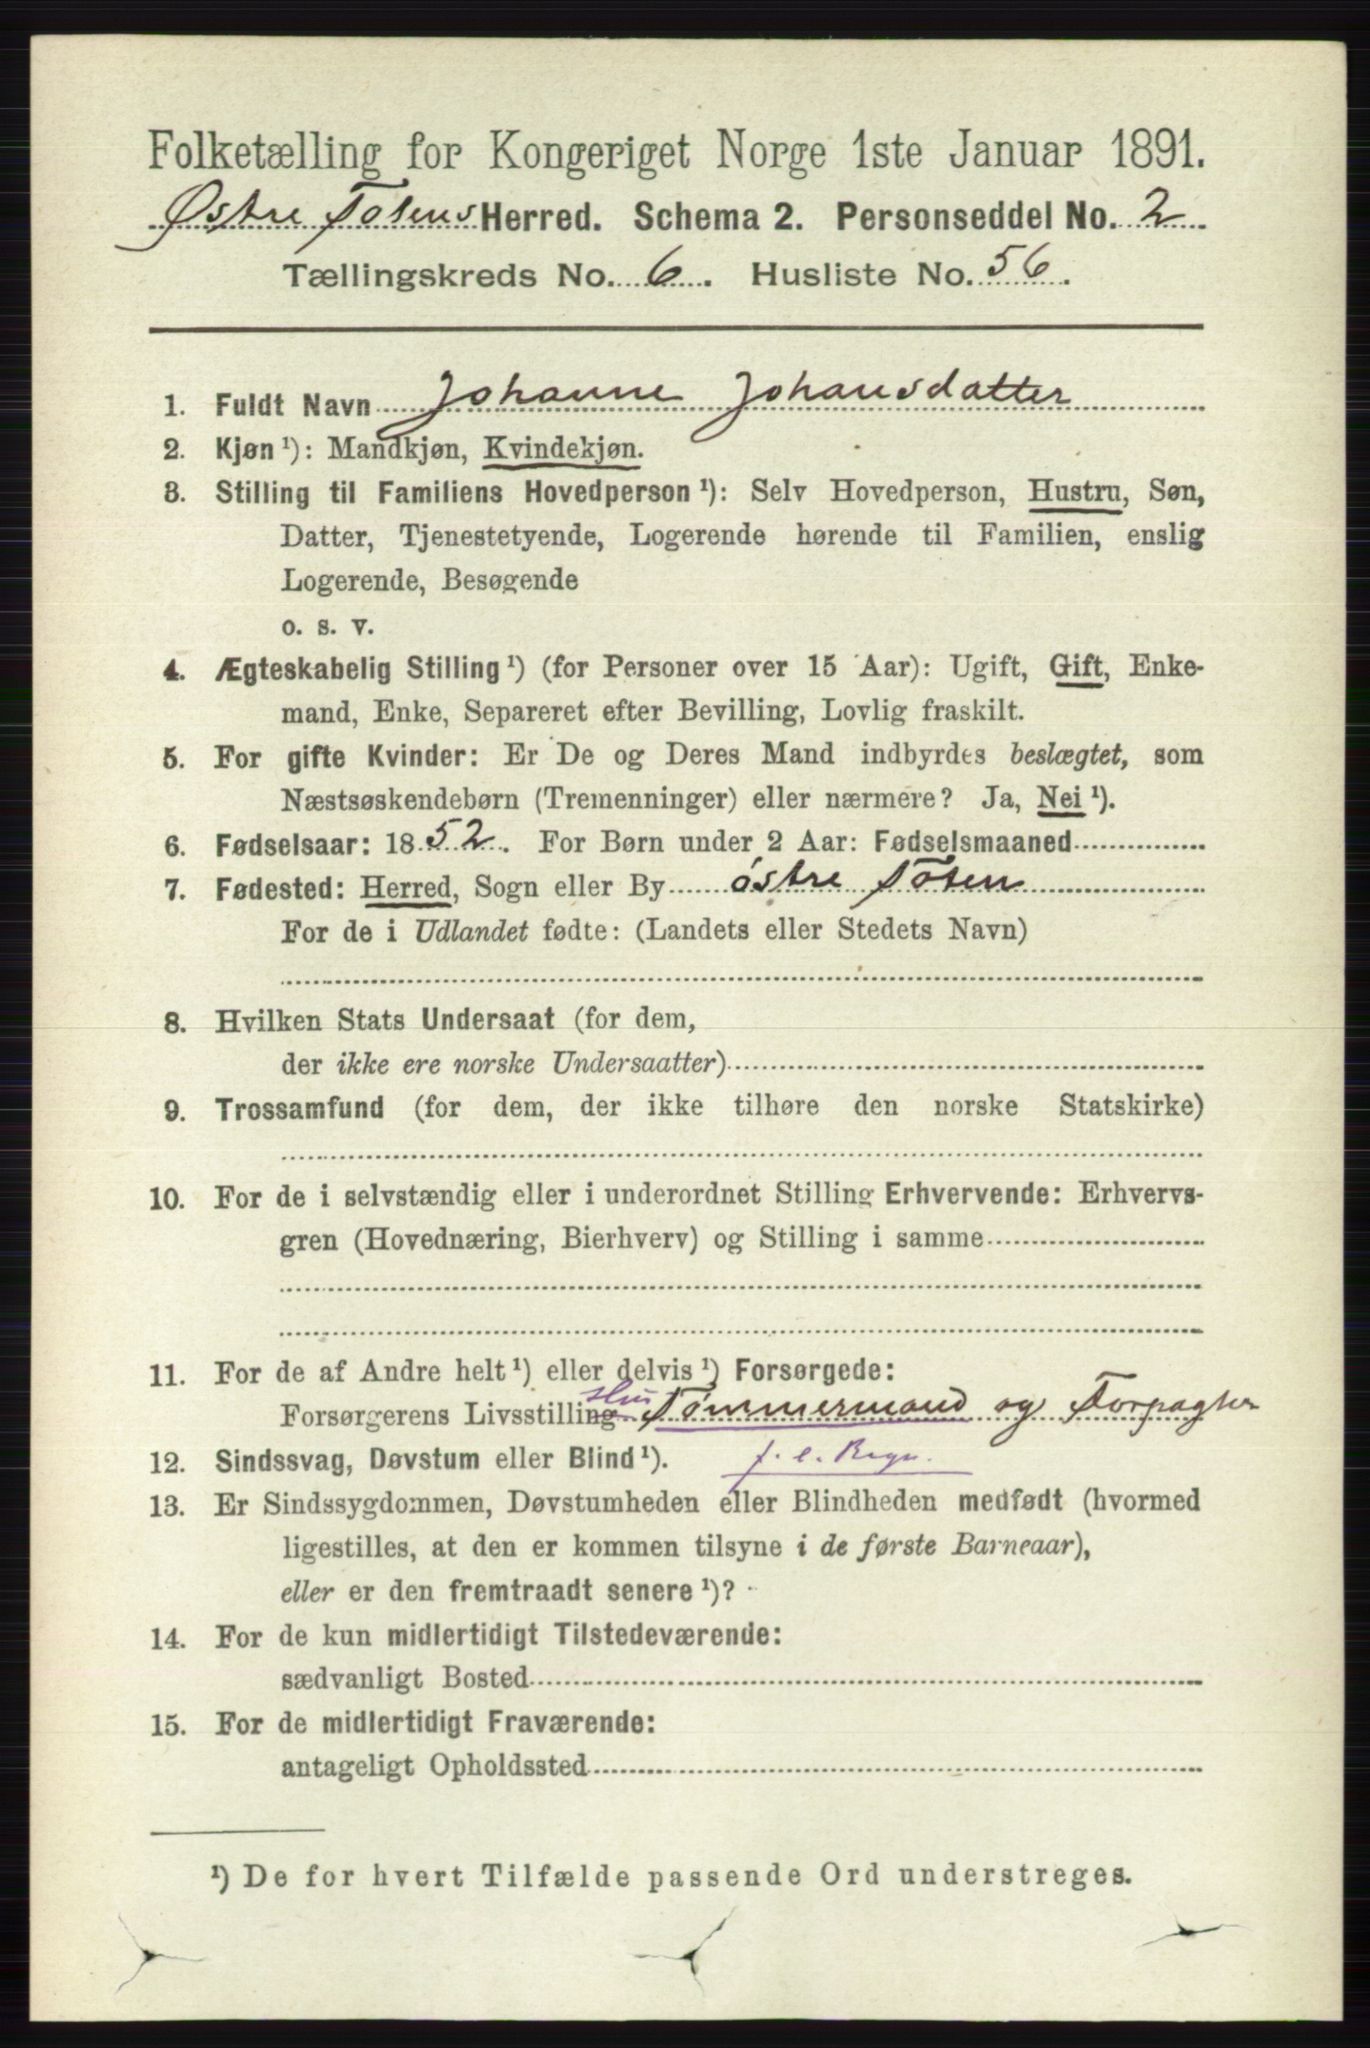 Folketælling for Kongeriget Norge 1ste Januar 1891.
Østre Totens Herred. Schema 2. Personseddel No. 2
Tællingskreds No. 6. Husliste No. 56.
1. Fuldt Navn Johanne Johansdatter
2. Kjøn ¹): Mandkjøn, Kvindekjøn.
3. Stilling til Familiens Hovedperson ¹): Selv Hovedperson, Hustru, Søn,
Datter, Tjenestetyende, Logerende hørende til Familien, enslig
Logerende, Besøgende
o. s. v.
4. Ægteskabelig Stilling ¹) (for Personer over 15 Aar): Ugift, Gift, Enke-
mand, Enke, Separeret efter Bevilling, Lovlig fraskilt.
5. For gifte Kvinder: Er De og Deres Mand indbyrdes beslægtet, som
Næstsøskendebørn (Tremenninger) eller nærmere? Ja, Nei ¹).
6. Fødselsaar: 1852. For Børn under 2 Aar: Fødselsmaaned
7. Fødested: Herred, Sogn eller By østre Toten
For de i Udlandet fødte: (Landets eller Stedets Navn)
8. Hvilken Stats Undersaat (for dem,
der ikke ere norske Undersaatter)
9. Trossamfund (for dem, der ikke tilhøre den norske Statskirke)
10. For de i selvstændig eller i underordnet Stilling Erhvervende: Erhvervs-
gren (Hovednæring, Bierhverv) og Stilling i samme
11. For de af Andre helt ¹) eller delvis ¹) Forsørgede:
Forsørgerens Livsstilling Hus Tømmermand og Forpagter
12. Sindssvag, Døvstum eller Blind ¹). f. e. Regn.
13. Er Sindssygdommen, Døvstumheden eller Blindheden medfødt (hvormed
ligestilles, at den er kommen tilsyne i de første Barneaar),
eller er den fremtraadt senere ¹)?
14. For de kun midlertidigt Tilstedeværende:
sædvanligt Bosted
15. For de midlertidigt Fraværende:
antageligt Opholdssted
¹) De for hvert Tilfælde passende Ord understreges.